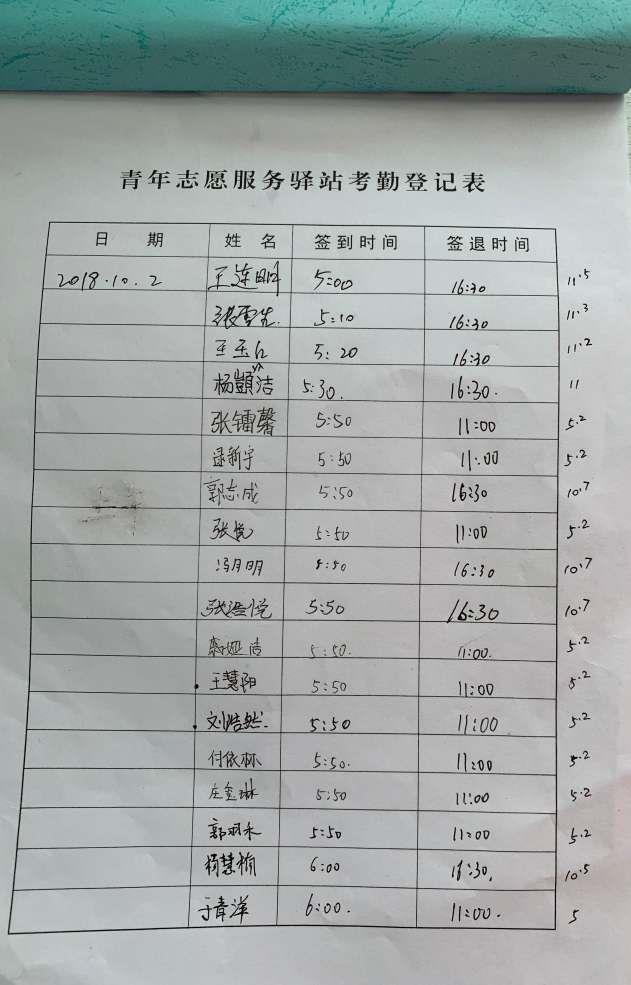 青年志愿服务驿站考勤登记表
日 期 姓 名 签到时间 签退时间
2018.10.2 王连明 5:00 16:30 11.5
张雪 5:10 16:30 11.3
王玉 5:20 16:30 11.2
杨顗洁 5:30. 16:30. 11
张镭馨 5:50 11:00 5.2
逯新宇 5:50 11:00 5.2
郭志成 5:50 16:30 10.7
张悦 5:50 11:00 5.2
冯月明 5:50 16:30 10.7
张 悦 5:50 16:30 10.7
娅洁 5:50. 11:00. 5.2
王慧阳 5:50 11:00 5.2
刘浩然. 5:50 11:00 5.2
付依林 5:50. 11:00 5.2
庄金琳 5:50 11:00 5.2
郭羽禾 5:50 11:00 5.2
杨慧楠 6:00 16:30. 10.5
于春洋 6:00. 11:00. 5